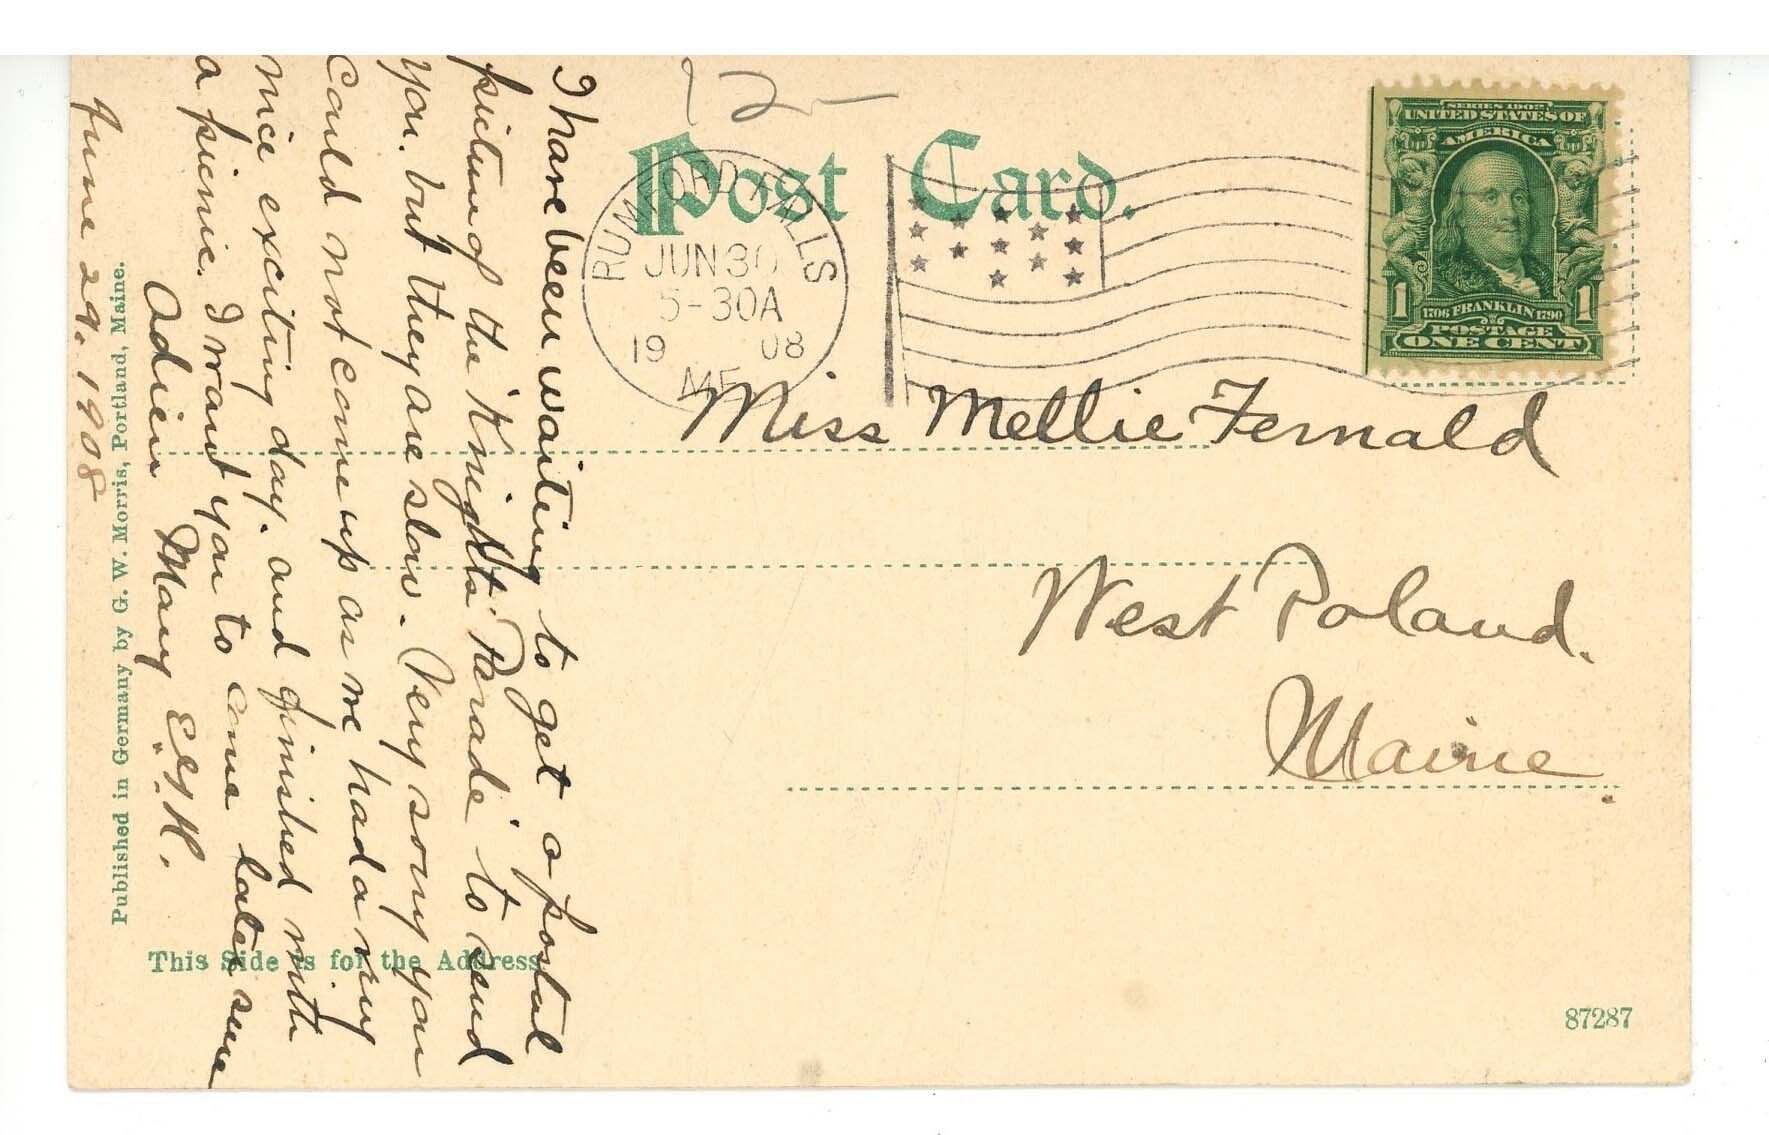 Post Card.
RUMFORD FALLS
JUN 30
5-30A
1908
ME.
SERIES 1902
UNITED STATES OF
AMERICA
1 1706 FRANKLIN 1790 1
POSTAGE
ONE CENT
Miss Mellie Fernald
West Poland.
Maine
I have been waiting to get a postal
picture of the "Knights Parade" to send
you. but they are slow. Very sorry you
could not come up as we had a very
nice exciting day. and finished with
a picnic. I want you to come later sure
Adieu Mary E. K.
June 29. 1908
Published in Germany by G. W. Morris, Portland, Maine.
This Side is for the Address
87287